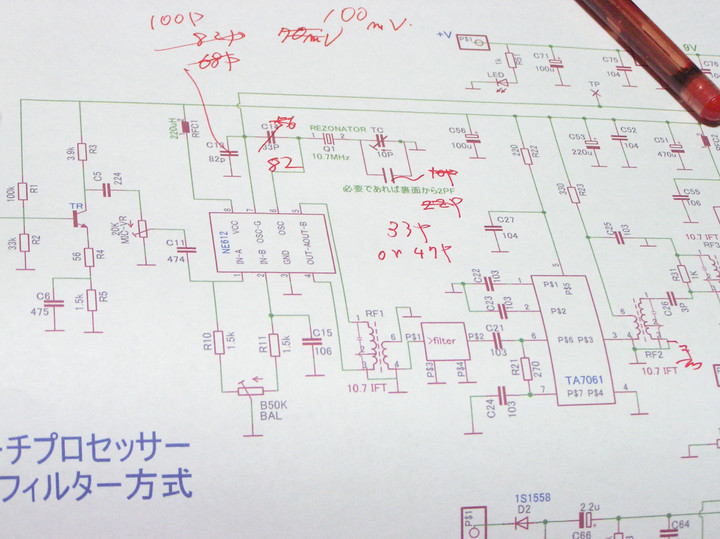 100P
100mV.
82P
70mV
68P
+V
P$1
1k
R51
LED
C71
100u
C75
104
9V
C76
TP
220uH
RFC1
C12
82p
56
33P
82
REZONATOR
1
2
Q1
10.7MHz
TC
10P
10P
必要であれば裏面から2PF
22P
33P
or 47P
C56
100u
220
R22
C53
220u
C52
104
C51
470u
C55
106
3.9k
R3
C5
224
100k
R1
TR
33k
R2
56
R4
20K
MIC-VR
C11
474
C6
475
1.5k
R5
NE612
8
7
6
5
VCC
OSC-G
OSC
OUT-AOUT-B
IN-A
IN-B
GND
1
2
3
4
C27
104
330
R23
C25
103
R10
1.5k
R11
1.5k
C15
106
B50K
BAL
RF1
10.7 IFT
P$1
>filter
P$2
P$3
P$4
C22
103
C23
103
C21
103
R21
270
C24
103
P$1
P$5
P$6 P$3
TA7061
P$7 P$4
R31
1K
C26
3P
RF3
RF2
10.7 IFT
ーチプロセッサー
フィルター方式
P$1
1S1558
D2
2.2u
C66
C64